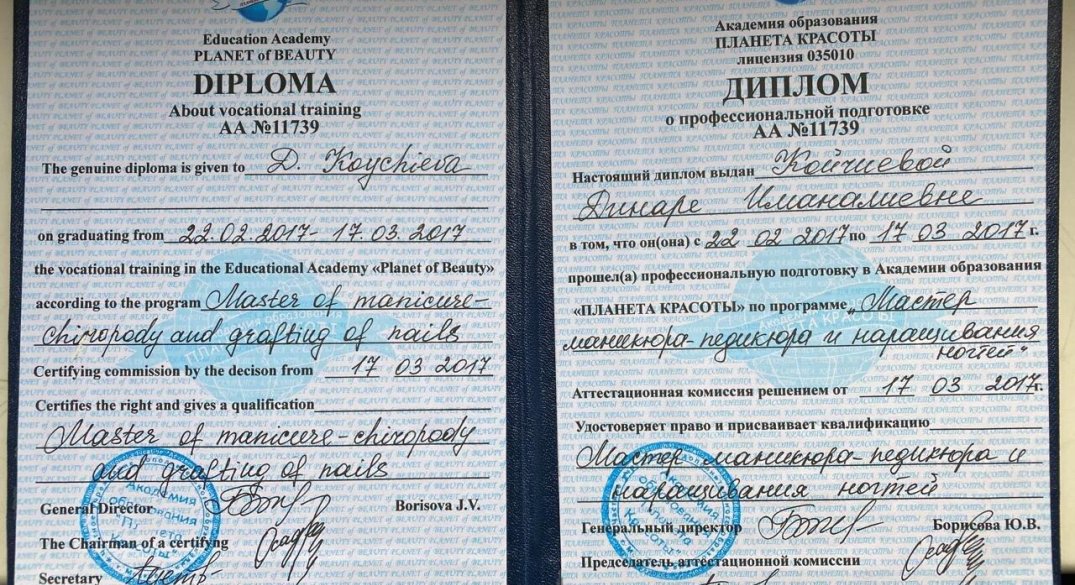 Education Academy
PLANET of BEAUTY
DIPLOMA
About vocational training
АА №11739
The genuine diploma is given to D. Koychieva
on graduating from 22.02.2017- 17.03.2017
the vocational training in the Educational Academy «Planet of Beauty»
according to the program Master of manicure-
chiropody and grafting of nails
Certifying commission by the decison from 17 03 2017
Certifies the right and gives a qualification
Master of manicure-chiropody
and grafting of nails
General Director Borisova J.V.
The Chairman of a certifyng
Secretary
Академия образования
ПЛАНЕТА КРАСОТЫ
лицензия 035010
ДИПЛОМ
о профессиональной подготовке
АА №11739
Настоящий диплом выдан Койчиевой
Динаре Иманалиевне
в том, что он(она) с 22 02 2017 по 17 03 2017 г.
прошел(а) профессиональную подготовку в Академии образования
«ПЛАНЕТА КРАСОТЫ» по программе „Мастер
маникюра-педикюра и наращивания
ногтей"
Аттестационная комиссия решением от 17 03 2017г.
Удостоверяет право и присваивает квалификацию
Мастер маникюра-педикюра и
наращивания ногтей
Генеральный директор Борисова Ю.В.
Председатель аттестационной комиссии